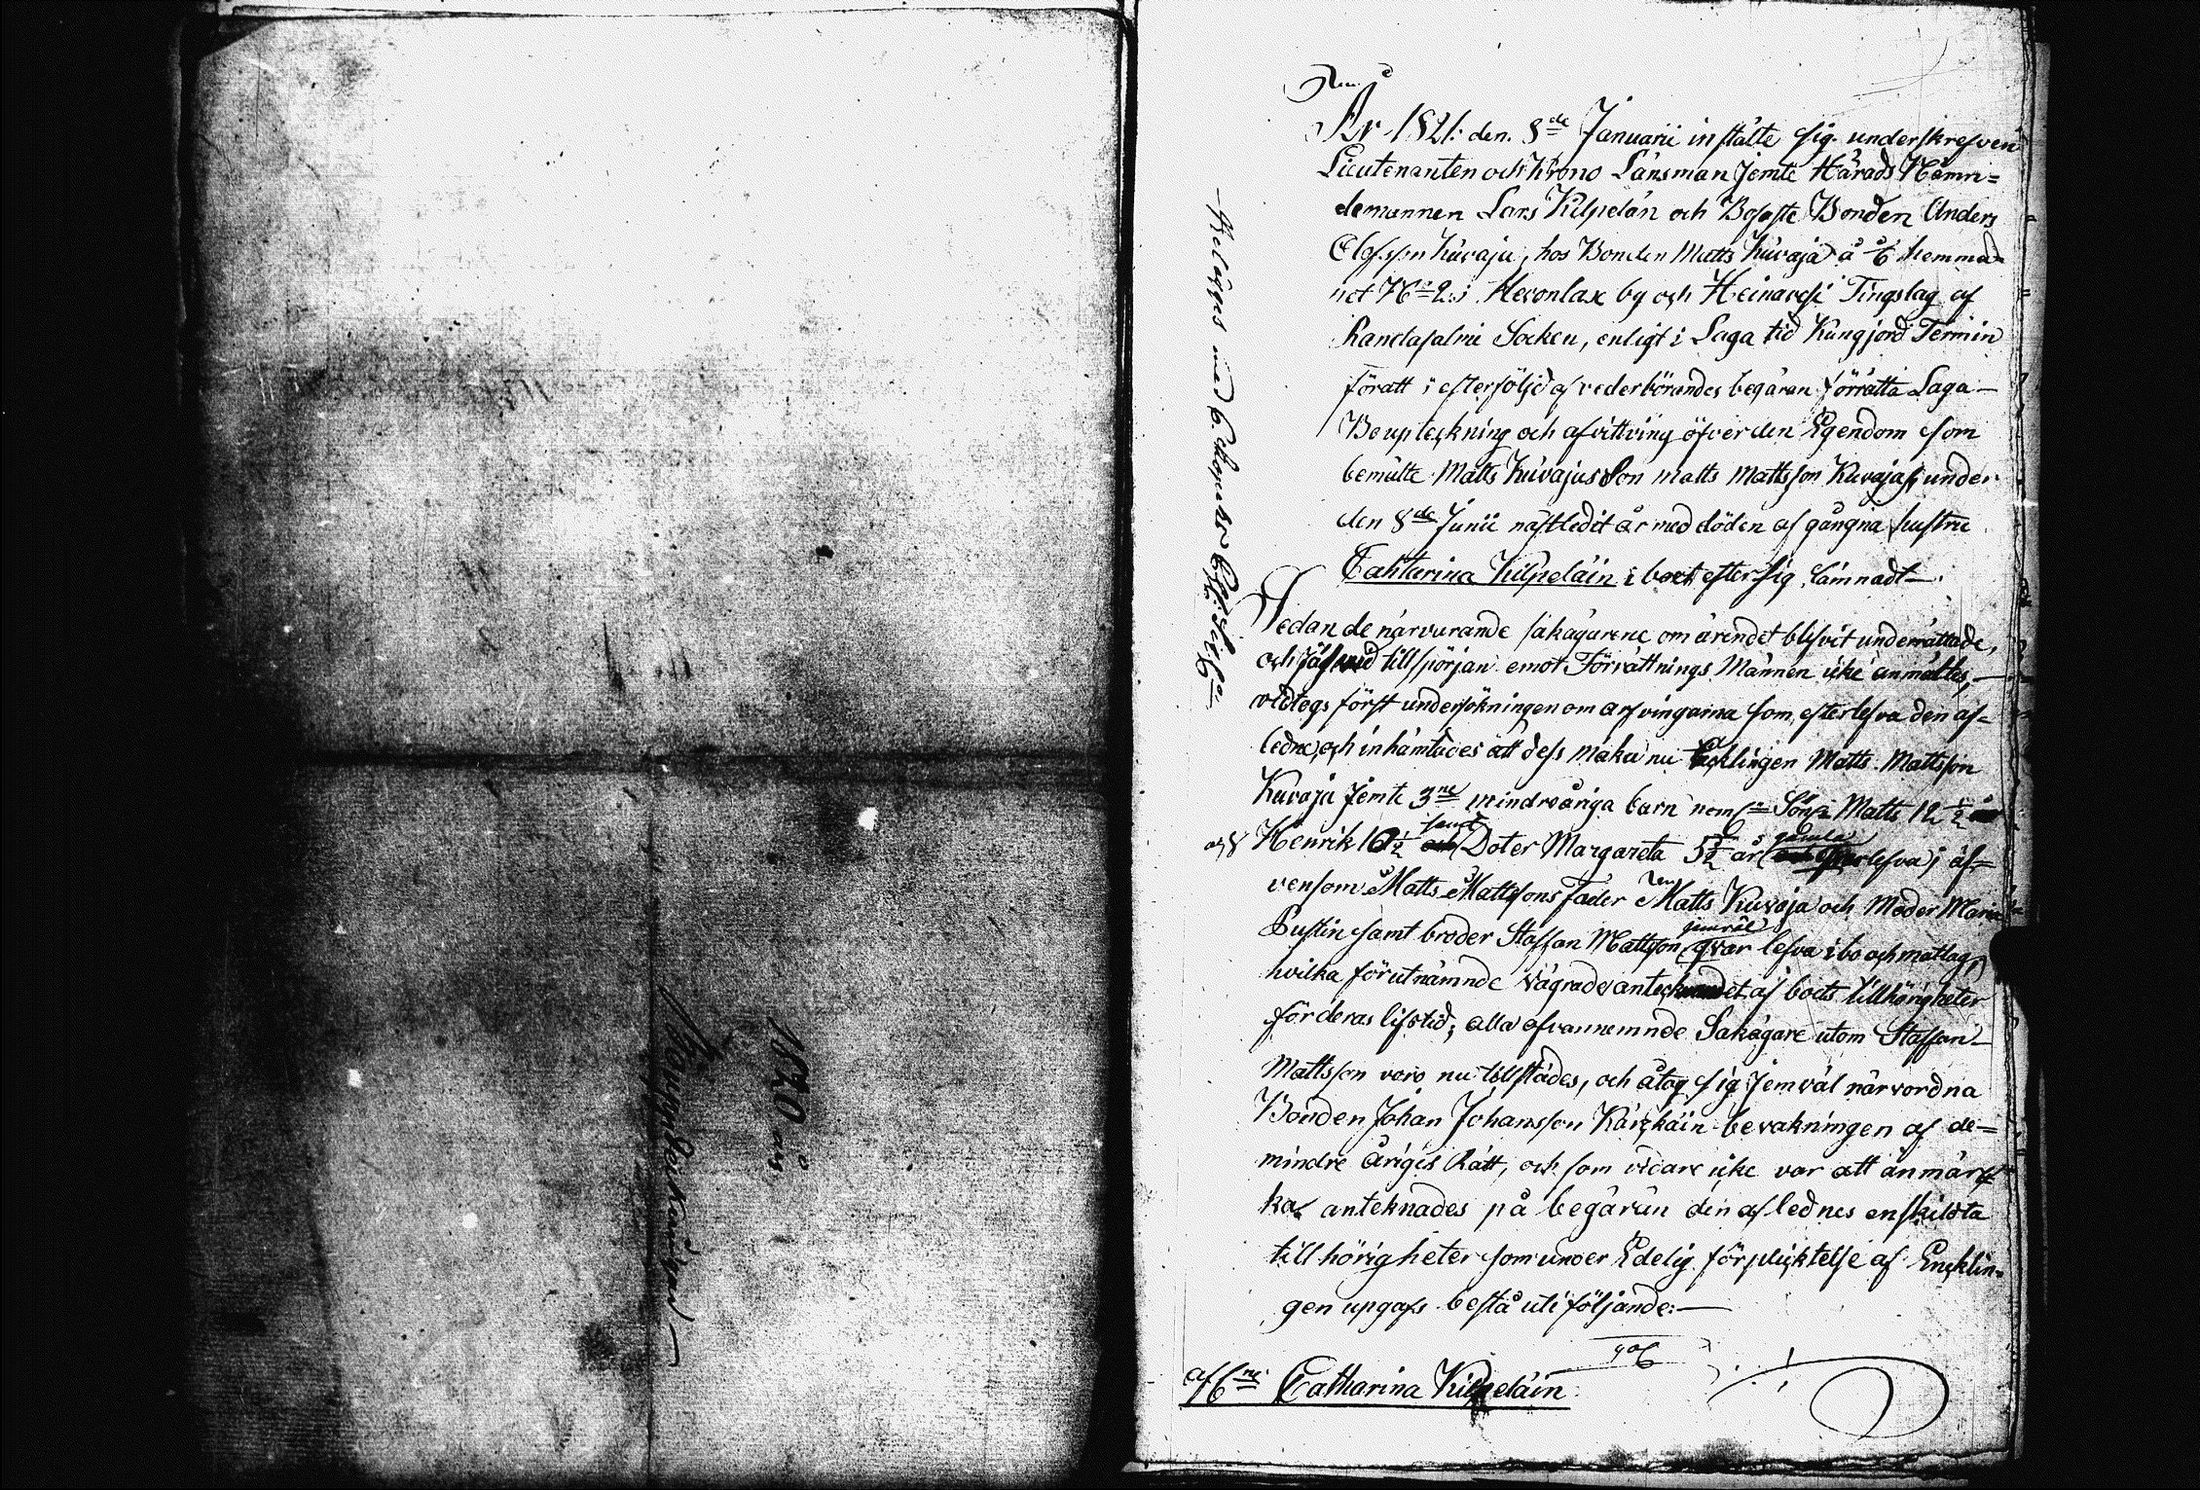 1820 års
Boupteckningar
År 1821. den 8de Januarii instälte sig underskrefven
Lieutenanten och Krono Länsman jemte Härads Nämn=
demannen Lars Kilpelän och Bofaste Bonden Anders
Olofsson Kuvaja, hos Bonden Matts Kuvaja å hemma=
net No 2 i Heronlax by och Heinävesi Tingslag af
Randasalmi Socken, enligt i Laga tid Kungjord Termin
föratt i efterföljd af vederbörandes begäran förrätta Laga
Boupteckning och afvittring öfver den Egendom som
bemälte Matts Kuvajas Son Matts Mattsson Kuvajas, under
den 8de Junii nästledit år med döden afgångna hustru
Catharina Kilpeläin i boet efter sig lämnadt.
Sedan de närvarande sakägarene om ärendet blifvit underrättade,
och jäf vid tillspörjan emot Förrättnings Männen icke anmältes,
vidtogs först undersökningen om arfvingarna som efterlefva den af=
ledne, och inhämtades att dess maka nu Encklingen Matts Mattsson
Kuvaja jemte 3ne mindreåriga barn neml. Söner Matts 12 ½
och Henrik 10 ½ samt Doter Margareta 5 ½ år gamla efterlefva; äf=
vensom Matts Mattssons Fader Matts Kuvaja och Moder Maria
Pustin samt broder Staffan Mattsson jemväl qvar lefva i bo och matlag,
hvilka förutnämnde vägrade antecknandet af boets tillhörigheter
för deras lifstid; alla ofvannemnde Sakägare utom Staffan
Mattsson voro nu tillstädes, och åtog sig jemväl närvordna
Bonden Johan Johansson Kärkäin bevakningen af de
mindre årigas Rätt, och som vidare icke var att anmär=
ka anteknades på begäran den aflednes enskildta
tillhörigheter som under Edelig förplicktelse af Encklin=
gen upgafs bestå uti följande:
afl:ne Catharina Kilpeläin